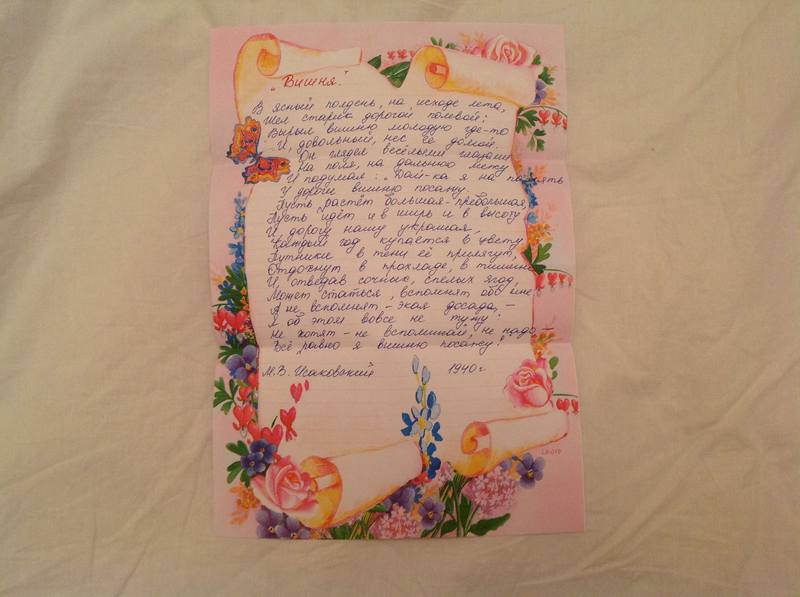 „Вишня."
В ясный полдень, на исходе лета,
Шел старик дорогой полевой;
Вырыл вишню молодую где-то
И, довольный, нес её домой.
Он глядел весёлыми глазами
На поля, на дальнюю межу
И подумал: „Дай-ка я на память
У дороги вишню посажу.
Пусть растёт большая-пребольшая,
Пусть идёт и в ширь и в высоту
И, дорогу нашу украшая,
Каждый год купается в цвету.
Путники в тени её прилягут,
Отдохнут в прохладе, в тишине
И, отведав сочных, спелых ягод,
Может статься, вспомнят обо мне.
А не вспомнят - экая досада, -
Я об этом вовсе не тужу:
Не хотят - не вспоминай, не надо -
Всё равно я вишню посажу!
М.В. Исаковский 1940 г.